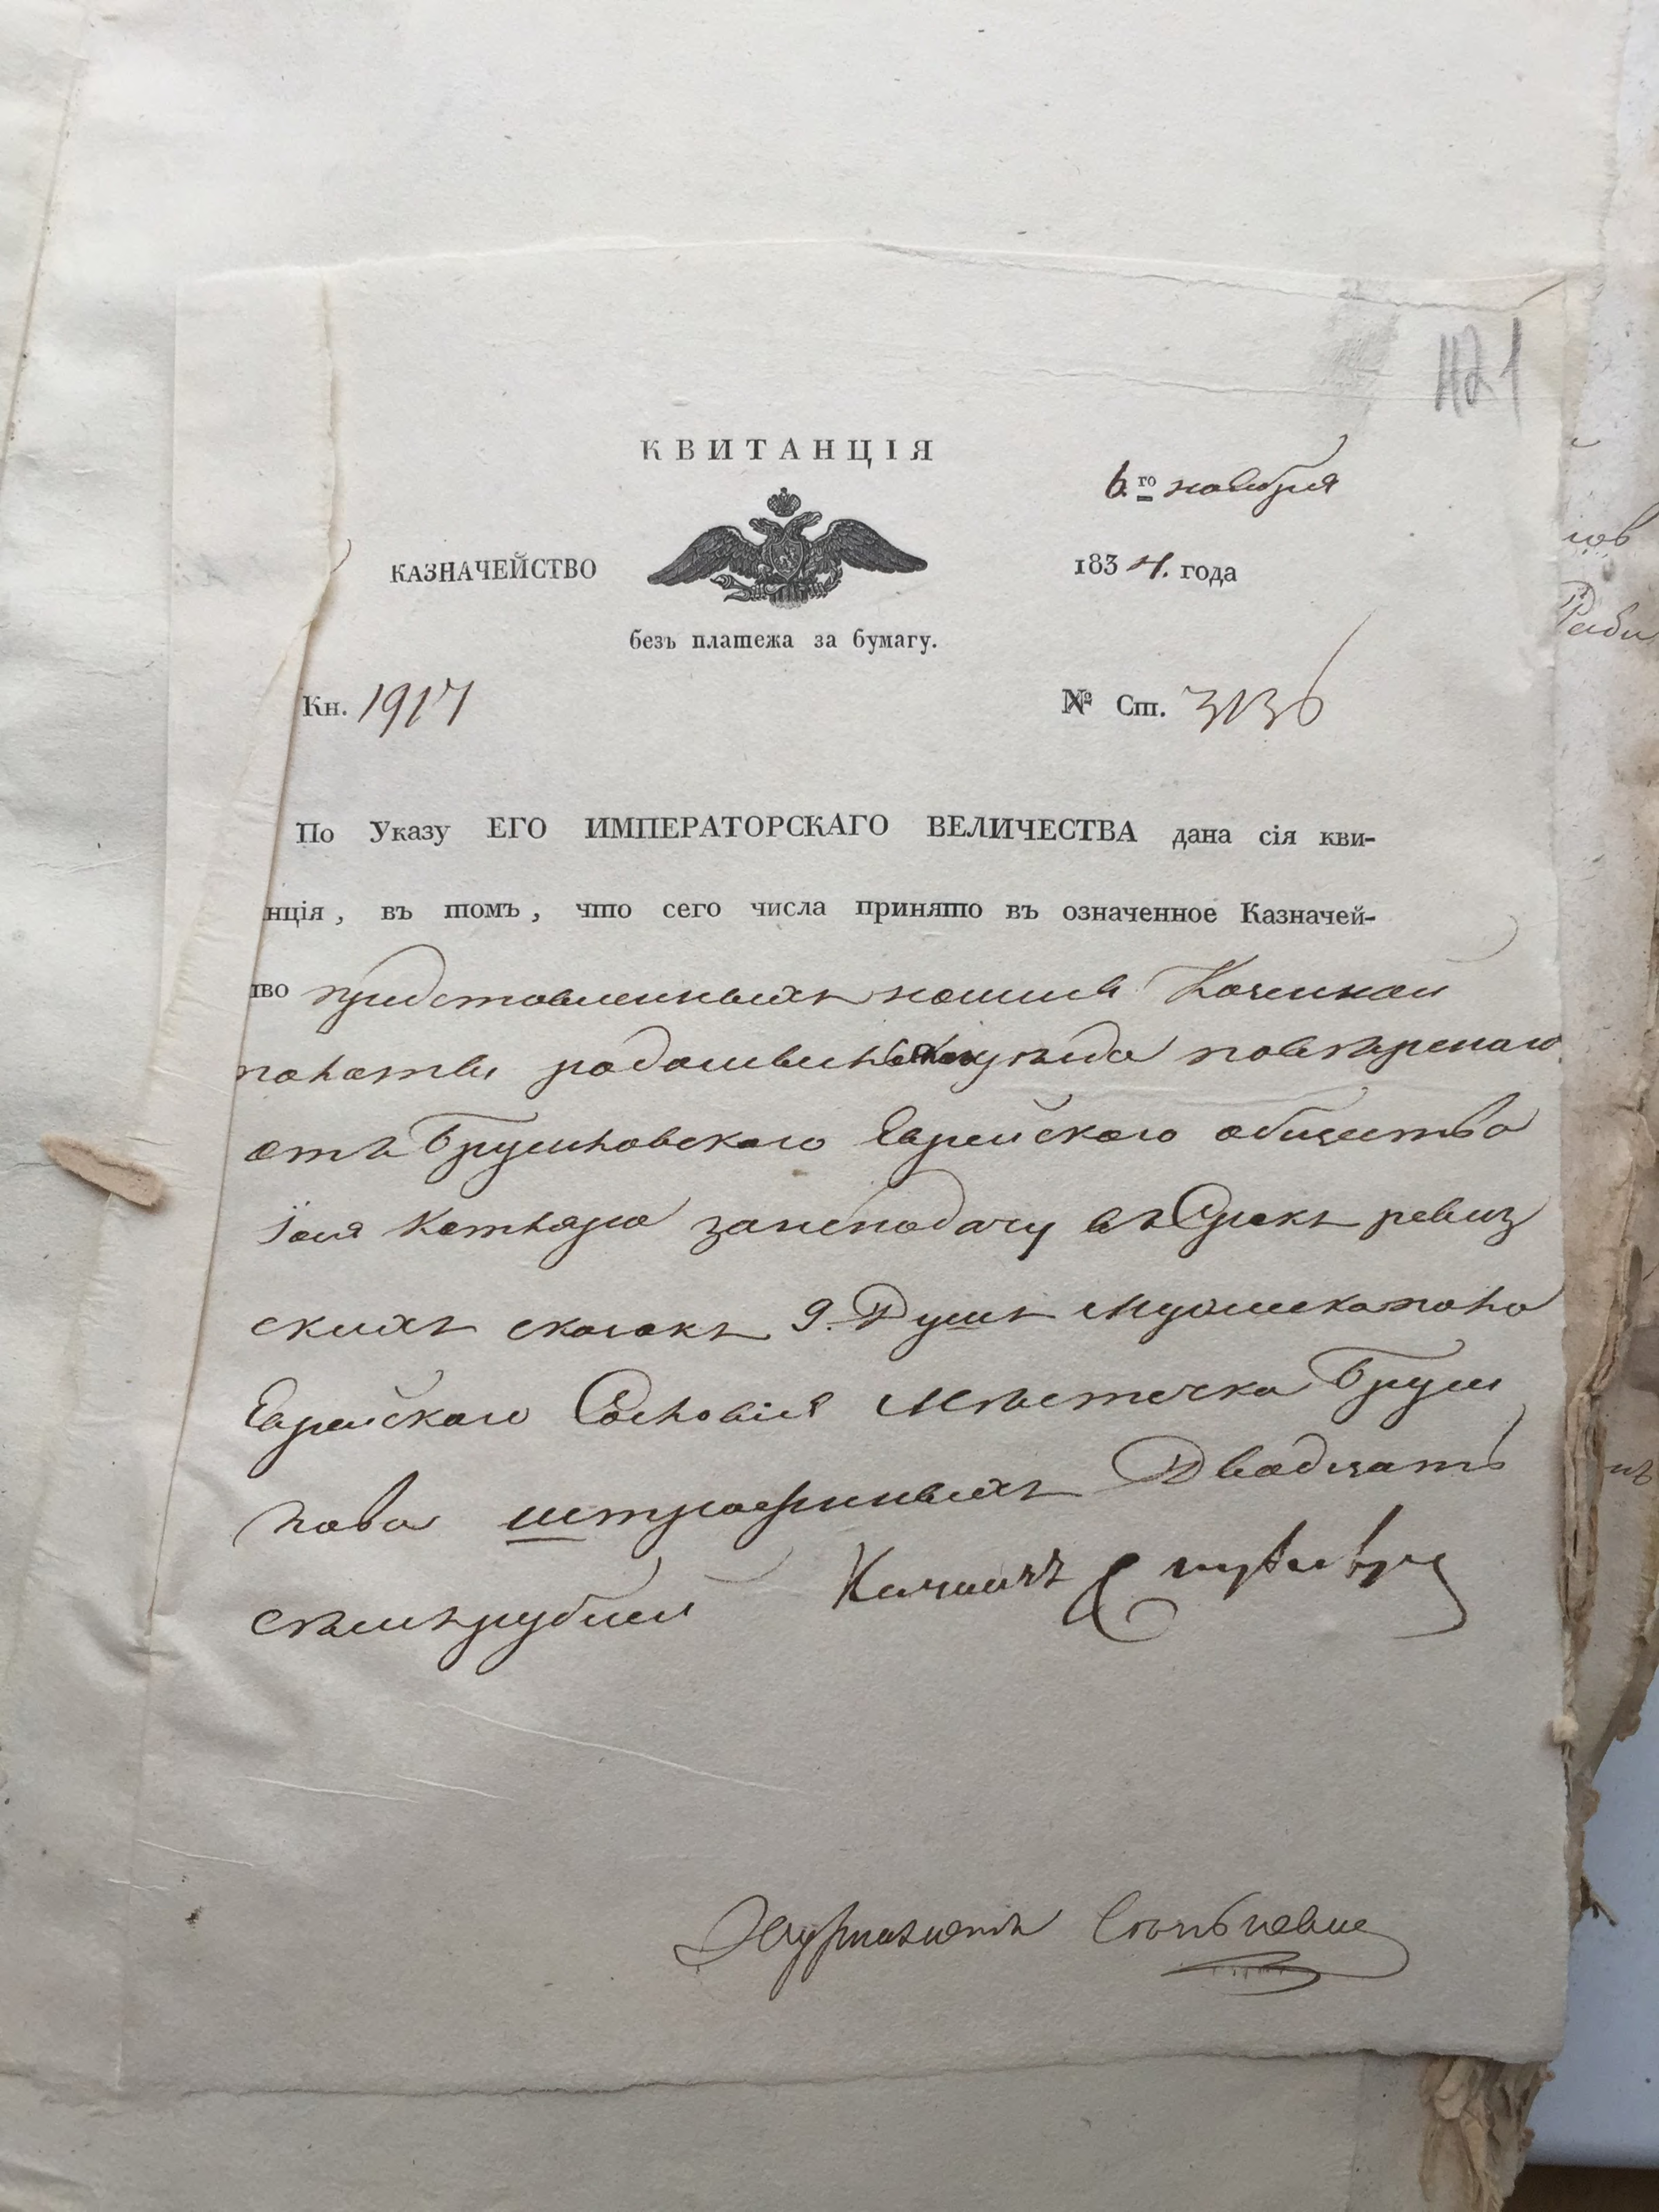 421
КВИТАНЦІЯ
6го ноября
КАЗНАЧЕЙСТВО
1834. года
безъ платежа за бумагу.
Кн. 1917
№ Ст. 3136
По Указу ЕГО ИМПЕРАТОРСКАГО ВЕЛИЧЕСТВА дана сія кви-
нція, въ томъ, что сего числа принято въ означенное Казначей-
тво представленныхъ Казенной
палаты уезда повѣренаго
отъ Брусиловскаго Еврейскаго общества
занеподачу въ Срокъ ревиз
скихъ сказокъ 9. Душъ Мужеска пола
Еврейскаго Сословія Мѣстечка Бруси
лова штрафныхъ Двадцать
семь рублей Казначей
Журналистъ